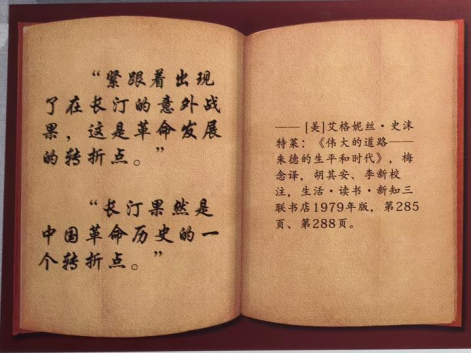 “紧跟着出现
了在长汀的意外战
果，这是革命发展
的转折点。”
“长汀果然是
中国革命历史的一
个转折点。”
—— [美]艾格妮丝·史沫
特莱：《伟大的道路——
朱德的生平和时代》，梅
念译，胡其安、李新校
注，生活·读书·新知三
联书店1979年版，第285
页、第288页。